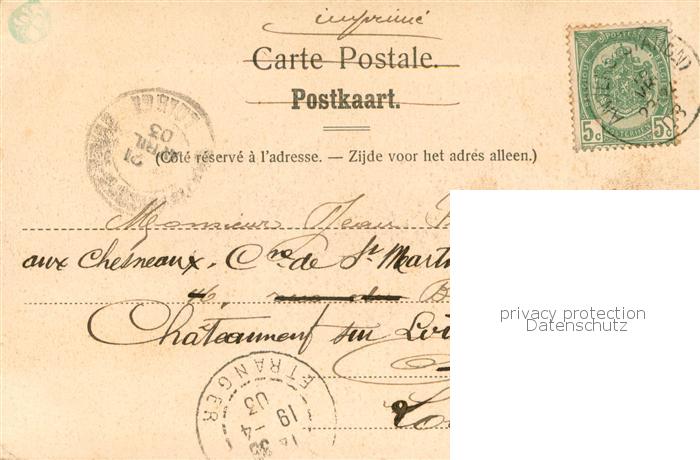 imprimé
Carte Postale.
Postkaart.
(Côté réservé à l'adresse. — Zijde voor het adres alleen.)
POSTES
5c 5c
21
AVRIL
03
Monsieur Jean
aux Chesneaux. Cne de St Mart
46, rue du B
Châteauneuf sur Loi
ETRANGER
19 -4
03
privacy protection
Datenschutz